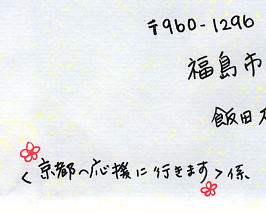 〒960-1296
福島市
飯田
<京都へ応援に行きます>係